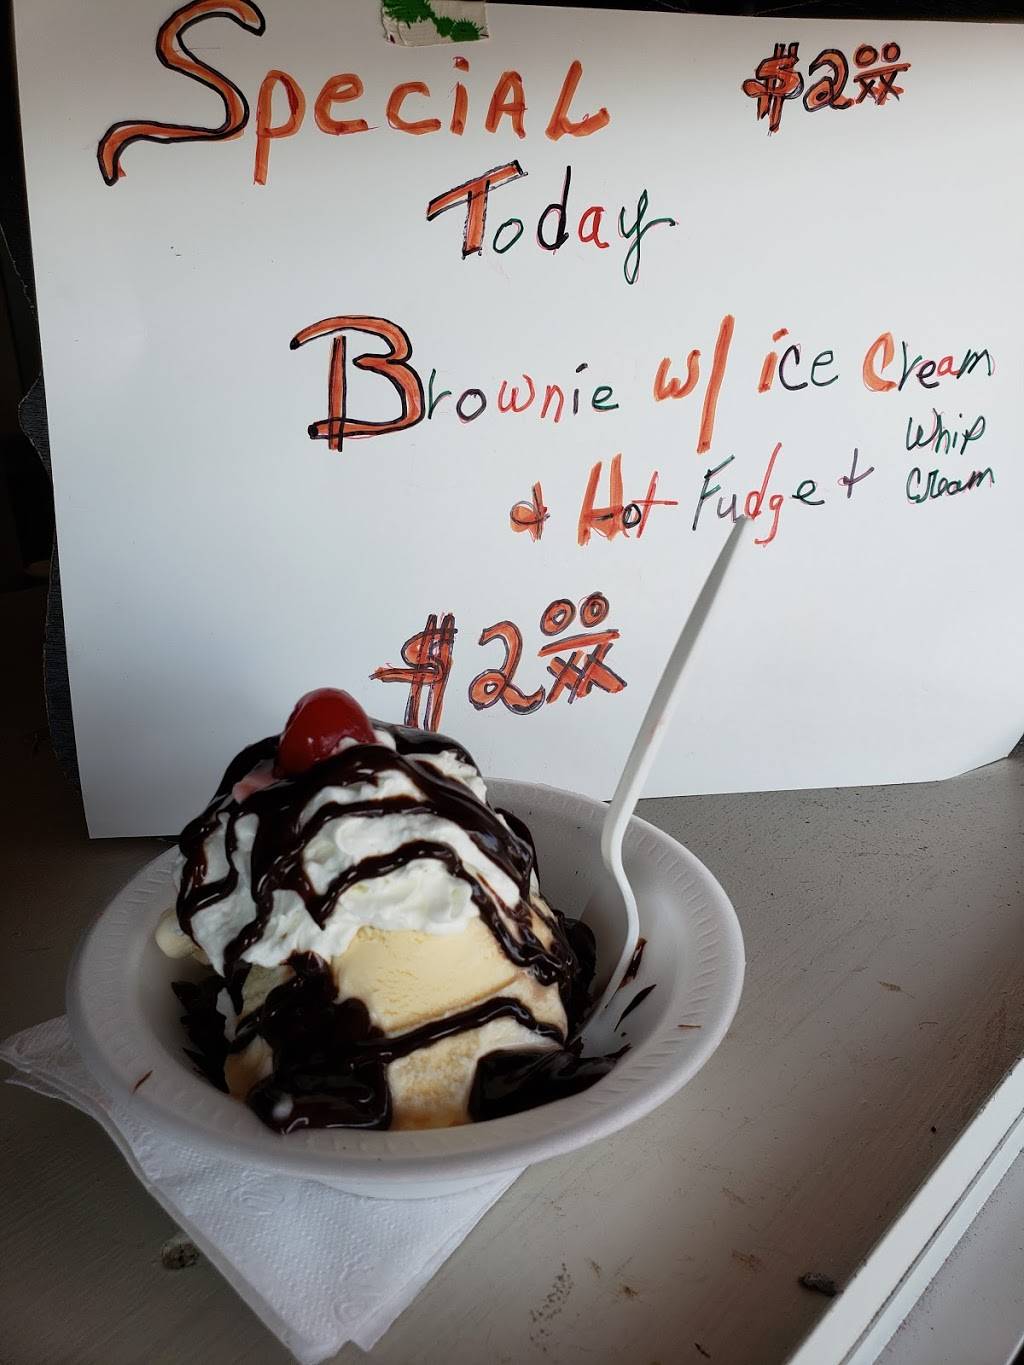 Special $2 00/xx
Today
Brownie w/ ice cream
& Hot Fudge + Whip
Cream
$2 00/xx